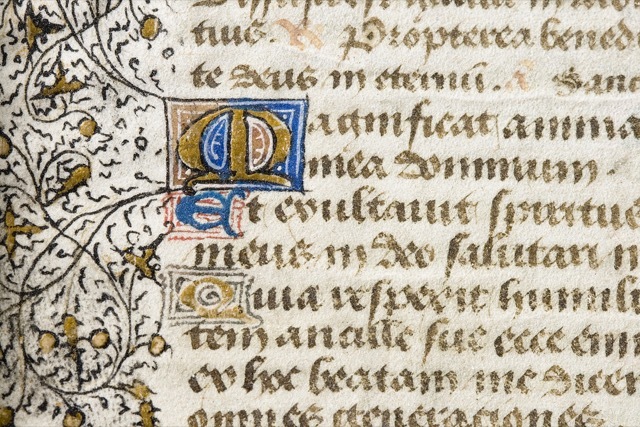 tius. V Propterea bened
te deus in eternū. A Sanc
Magnificat anima
mea dominum.
Et exultavit spiritus
meus in deo salutari m
Quia respexit humili
tem ancille sue ecce eni
ex hoc beatam me dicen
omnes generaciones